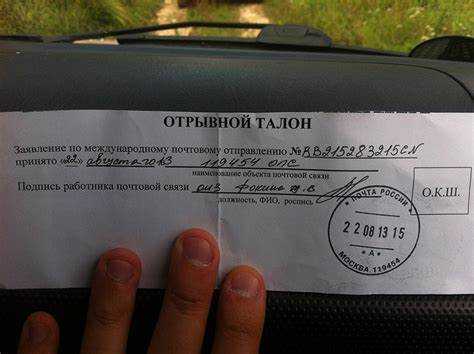 ОТРЫВНОЙ ТАЛОН
Заявление по международному почтовому отправлению №RB215283215CN
принято «22» августа 2013 119454 ОПС
наименование объекта почтовой связи
Подпись работника почтовой связи
должность, ФИО, роспись
О.К.Ш.
ПОЧТА РОССИИ
22 08 13 15
МОСКВА 119454